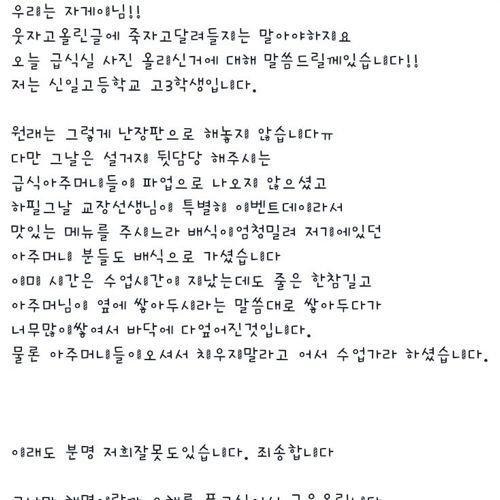 우리는 자게이님!!
웃자고올린글에 죽자고달려들지는 말아야하지요
오늘 급식실 사진 올리신거에 대해 말씀드릴께있습니다!!
저는 신일고등학교 고3학생입니다.
원래는 그렇게 난장판으로 해놓지 않습니다ㅠ
다만 그날은 설거지 뒷담당 해주시는
급식아주머니들이 파업으로 나오지 않으셨고
하필그날 교장선생님이 특별히 이벤트데이라서
맛있는 메뉴를 주시느라 배식이엄청밀려 저기에있던
아주머니 분들도 배식으로 가셨습니다
이미 시간은 수업시간이 지났는데도 줄은 한참길고
아주머님이 옆에 쌓아두시라는 말씀대로 쌓아두다가
너무많이쌓여서 바닥에 다엎어진것입니다.
물론 아주머니들이오셔서 치우지말라고 어서 수업가라 하셨습니다.
이래도 분명 저희잘못도있습니다. 죄송합니다